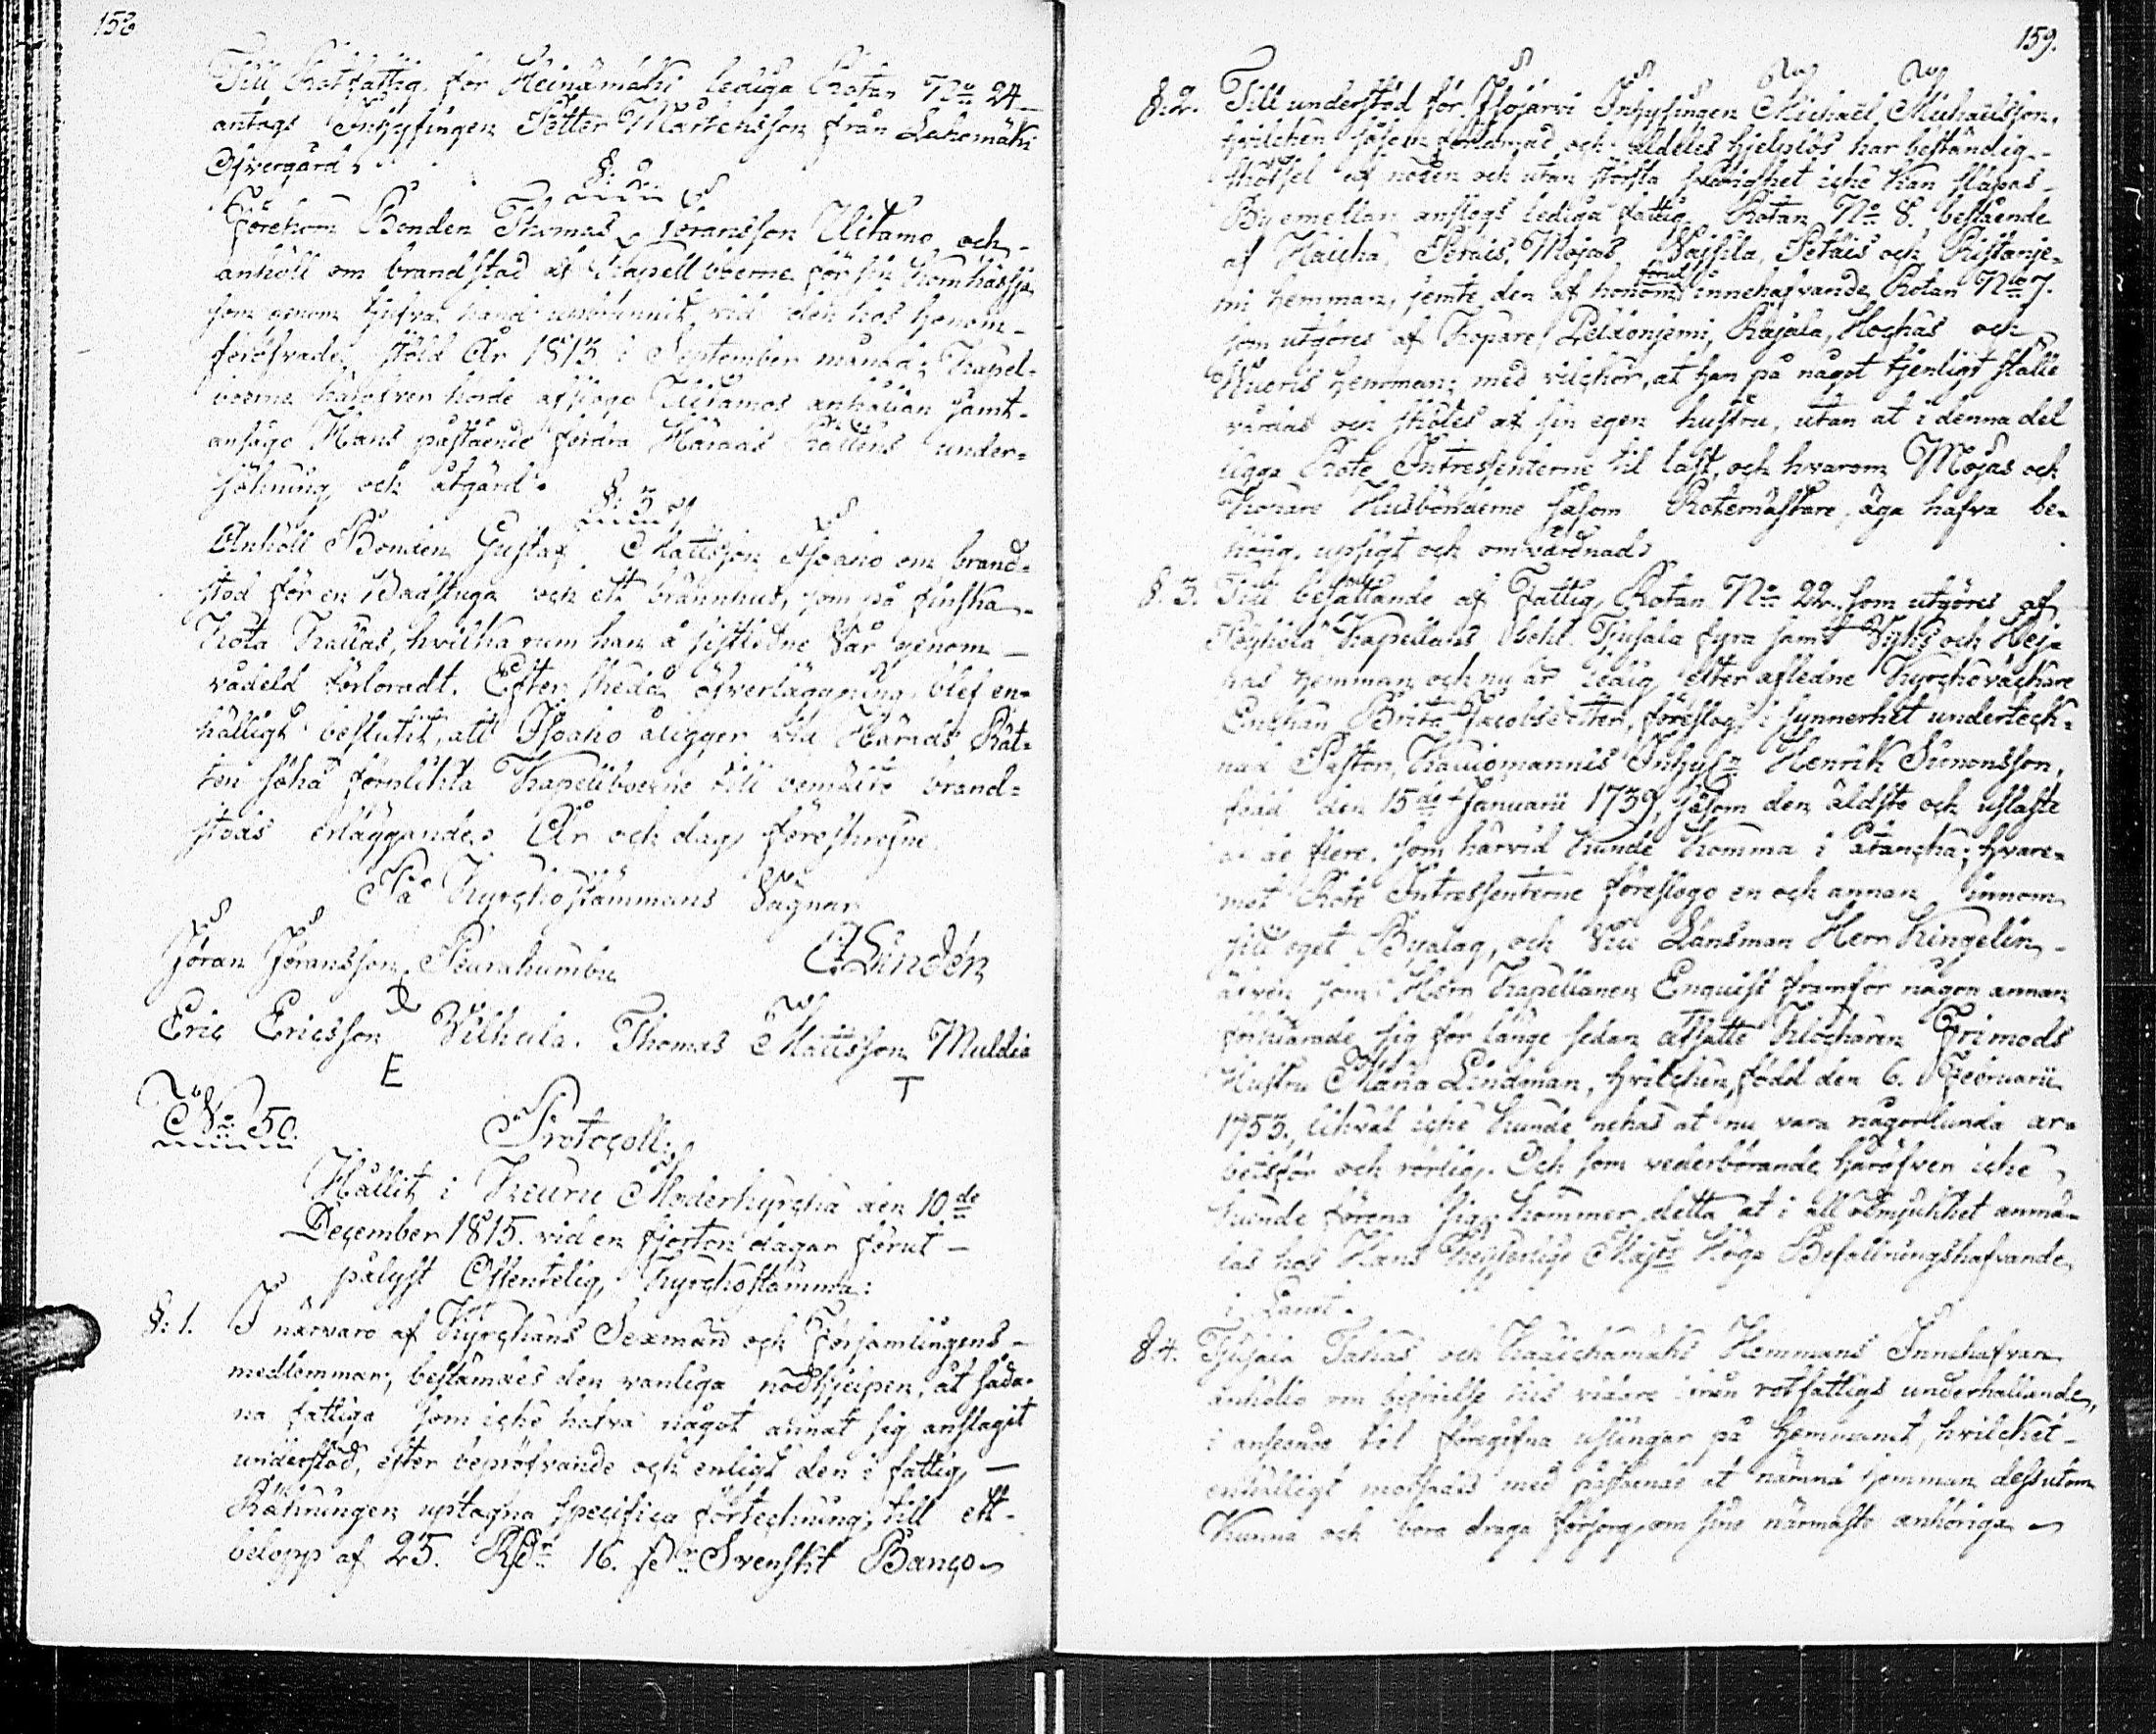 158
Till Rotfattig för Heinämäki lediga Rotan N:o 24
antogs Inhysingen Petter Mårtensson från Lahomäki
Öfvergård.
§: 2.
Förekom Bonden Thomas Jöransson Ulitamo och
anhöll om brandstod af Kapellboerne för sin Kornhässja
som genom tjufva hand upbrunnit, vid den hos honom
föröfvade stöld År 1813 i September månad; Kapel-
boerne häröfver hörde afslogo Ulitamos anhållan samt
ansågo Hans påstående fordra Härads Rättens under-
sökning och åtgärd.
§: 3.
Anhöll Bonden Gustaf Mattsson Isoaho om brand-
stod för en Badstuga och ett brännhus, som på finska
Kota kallas, hvilka rum han å sistledne Vår genom
vådeld förloradt. Efter skedd öfverläggning, blef en-
hälligt beslutit, att Isoaho åligger vid Härads Rät-
ten söka förplikta Kapellboerne till bemälte brand-
stods erläggande. År och dag föreskrefne.
På Kyrckostämmans Vägnar
Jöran Jöransson Peurakumbu CLindén
Eric Ericsson Vilkula. Thomas Mattsson Muldia
E T
N:o 50.
Protocoll,
Hållit i Keuru Moderkyrcka den 10de
December 1815. vid en fjorton dagar förut
pålyst Offentelig Kyrckostämma:
§: 1. I närvaro af Kyrckans Sexmän och Församlingens
medlemmar, bestämdes den vanliga nödhjelpen, åt såda-
na fattige som icke hafva något annat sig anslagit
understöd, efter bepröfvande och enligt den i fattig
Räkningen uptagna specifica förteckning, till ett
belopp af 25. Rdr 16. s. Svenskt Banco
159.
§. 2. Till understöd för Ilojärvi Inhysingen Michaël Michaelsson,
hvilcken såsom förlamad och aldeles hjelplös har beständig
skötsel af nöden och utan största svårighet icke kan släpas
Byemellan anslogs lediga fattig Rotan N:o 8. bestående
af Haicka, Perais, Mojas, Vaissila, Petäis och Ristanje-
mi hemman, jemte den af honom förut innehafvande Rotan N:o 7.
som utgöres af Kopare, Pelxonjemi, Räjälä, Hockas och
Hueris hemman; med vilckor, at han på något tjenligt ställe
vårdas och skötes af sin egen hustru, utan at i denna del
ligga Rote Intressenterne til last, och hvarom Mojas och
Kopare Husbönderne såsom Rotemästare, äga hafva be-
hörig upsigt och omvårdnad.
§. 3. Till besättande af Fattig Rotan N:o 22. som utgöres af
Pöyhölä Kapellans Bohl. Tjusala fyra samt Vyks och Reja
has hemman och nu är ledig efter afledne Kyrckoväcktare
Enckan Brita Jacobsdotter, föreslog i synnerhet underteck-
nad Pastor, Kauiomannis Inhys:n Henrik Simonsson,
född den 15de Januarii 1739, såsom den äldste och uslaste
af de flere, som härvid kunde komma i åtancka; hvare-
mot Rote Intressenterne föreslogo en och annan innom
sitt eget Byalag, och Vice Länsman Herr Kingelin
äfven som Herr Kapellanen Enquist framför någon annan
förklarade sig för länge sedan afsatte Klockaren Frimods
Hustru Maria Lindman, hvilcken född den 6. Februarii
1753., likväl icke kunde nekas at nu vara någorlunda ar-
betsför och rörlig. Och som vederbörande häröfver icke
kunde förena sig, kommer detta at i all ödmjukhet anmä-
las hos Hans Keyserlige Maj:ts Höga Befallningshafvande
i Länet.
§. 4. Tjusala Takas och Kaickamäki Hemmans Innehafvare
anhöllo om befrielse tils vidare från rotfattigs underhållande,
i anseende til föregifna uslingar på Hemmanet, hvilcket
enhälligt motsades med påstående at nämnde hemman dessutom
kunna och böra draga försorg om sine närmaste anhöriga